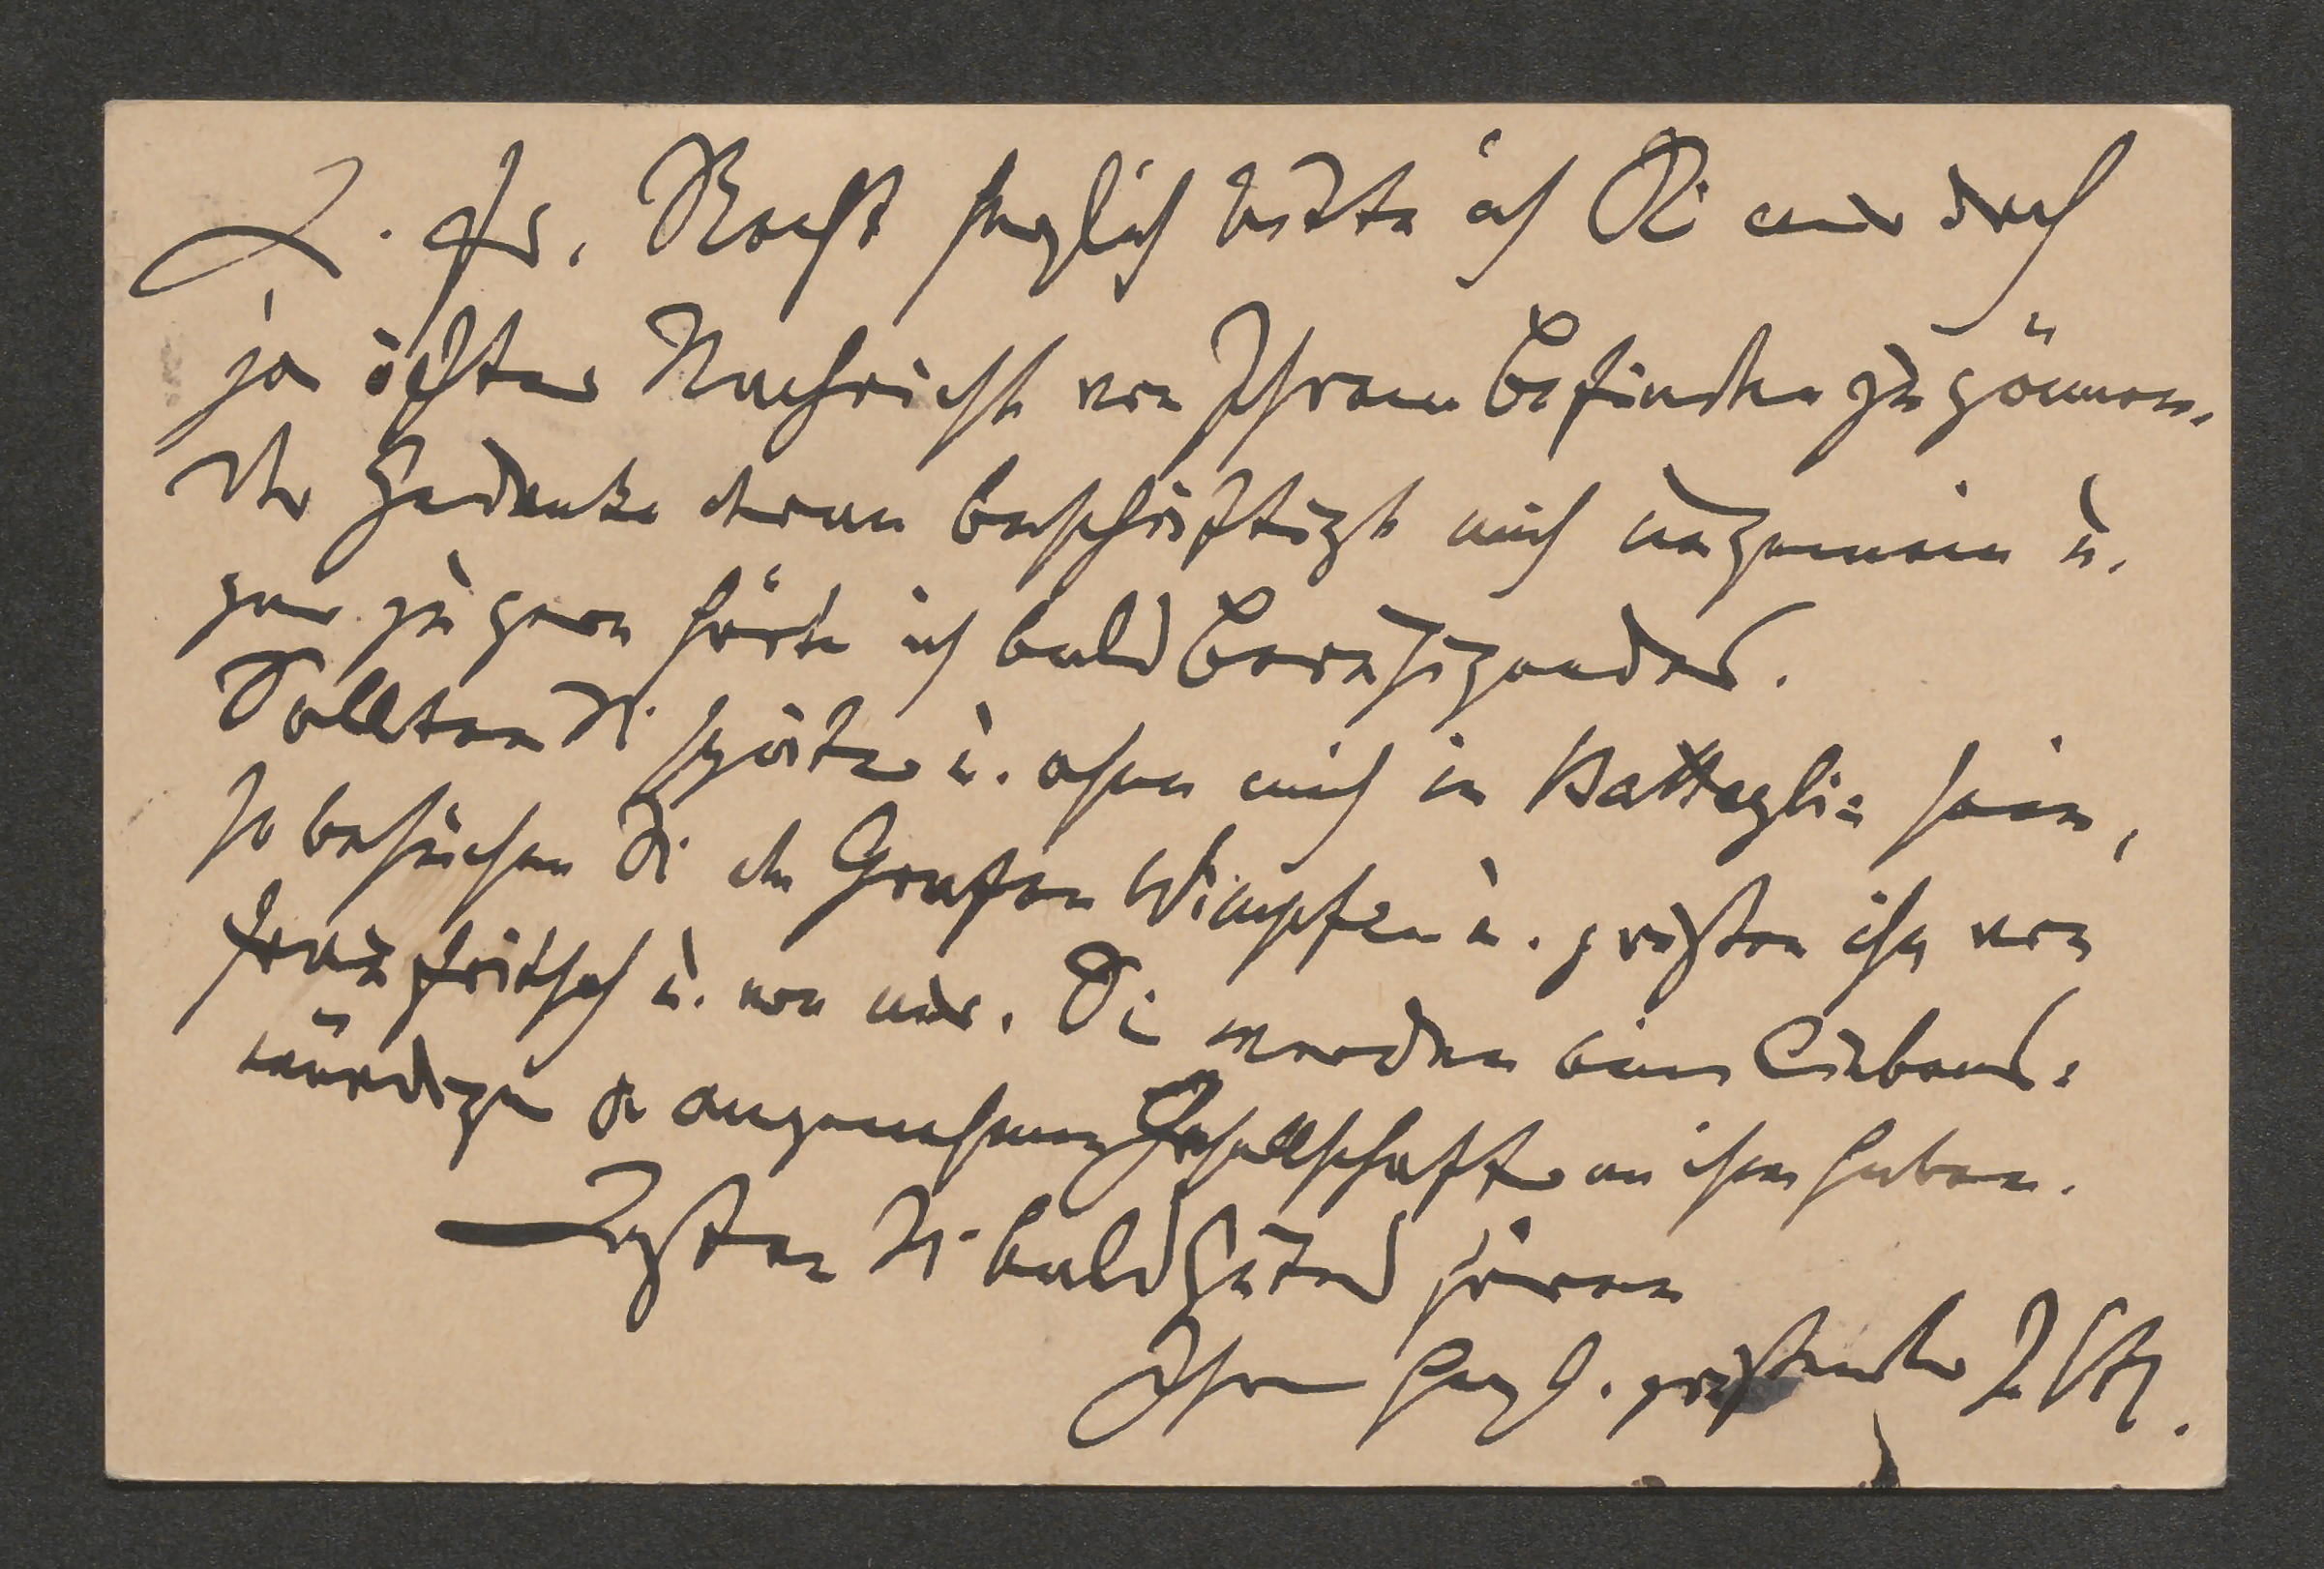 L. Fr. Recht herzlich bitte ich Sie mir doch
ja öfter Nachricht von Ihrem Befinden zu gönnen.
Der Gedanke daran beschäftigt mich ungemein u.
gar zu gern hörte ich bald Beruhigendes.
Sollten Sie später u. ohne mich in Battaglia sein,
so besuchen Sie den Grafen Wimpfen u. grüßen ihn von
Franz Fritsch u. von mir. Sie werden einen liebens-
würdigen angenehmen Gesellschafter an ihm haben.
Laßen Sie bald Gutes hören
Ihren herzl. grüßenden